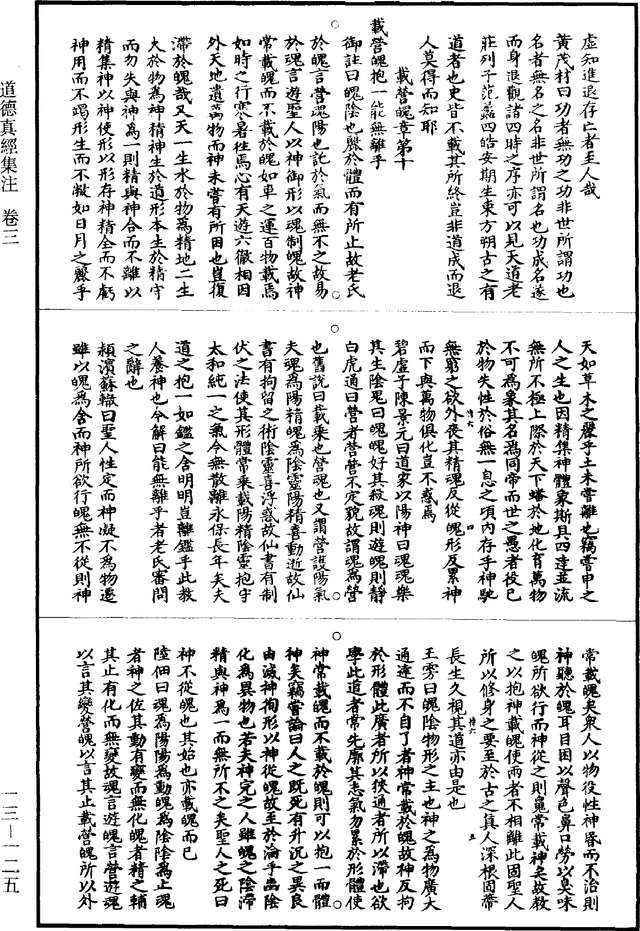 虛知進退存亡者至人哉
黃茂材曰功者無功之功非世所謂功也
名者無名之名非世所謂名也功成名遂
而身退觀諸四時之序亦可以見天道老
莊列子范蠡四皓安期生東方朔古之有
道者也史皆不載其所終豈非道成而退
人莫得而知耶
載營魄章第十
載營魄抱一能無離乎
御註曰魄陰也麗於體而有所止故老氏
於魄言營魂陽也託於氣而無不之故易
於魂言遊聖人以神御形以魂制魄故神
常載魄而不載於魄如車之運百物載焉
如時之行寒暑往焉心有天遊六徹相因
外天地遺萬物而神未嘗有所困也豈復
滯於魄哉又天一生水於物為精地二生
火於物為神精神生於道形本生於精守
而勿失與神為一則精與神合而不離以
精集神以神使形以形存神精全而不虧
神用而不竭形生而不敝如日月之麗乎
天如草木之麗乎土未嘗離也竊嘗申之
人之生也因精集神體象斯具四達並流
無所不極上際於天下蟠於地化育萬物
不可為象其名為同帝而世之愚者役已
於物失性於俗無一息之頃內存乎神馳
無窮之欲外喪其精魂反從魄形反累神
而下與萬物俱化豈不惑焉
碧虛子陳景元曰道家以陽神曰魂魂樂
其生陰鬼曰魄魄好其殺魂則遊魄則靜
白虎通曰營者營營不定貌故謂魂為營
也舊說曰載乘也營魂也又謂營護陽氣
夫魂為陽精魄為陰靈陽精喜動逝故仙
書有拘留之術陰靈喜浮惑故仙書有制
伏之法使其形體常乘載陽精陰靈抱守
太和純一之氣令無散離永保長年矣夫
道之抱一如鑑之含明明豈離鑑乎此教
人養神也今解曰能無離乎者老氏審問
之辭也
潁濱蘇轍曰聖人性定而神凝不為物遷
雖以魄為舍而神所欲行魄無不從則神
常載魄矣眾人以物役性神昏而不治則
神聽於魄耳目困以聲色鼻口勞以臭味
魄所欲行而神從之則魄常載神矣故教
之以抱神載魄使兩者不相離此固聖人
所以修身之要至於古之真人深根固蒂
長生久視其道亦由是也
王雱曰魄陰物形之主也神之為物廣大
通達而不自了者神常載於魄故神反拘
於形體此廣者所以狹通者所以滯也欲
學此道者常先廓其志氣勿累於形體使
神常載魄而不載於魄則可以抱一而體
神矣竊嘗論曰人之既死有升沉之異良
由滅神徇形以神從魄故至於淪乎幽陰
化為異物也若夫神完之人雖魄之陰滯
精與神為一而無所不之矣聖人之死曰
神不從魄也其始也亦載魄而已
陸佃曰魂為陽陽為動魄為陰陰為止魂
者神之佐其動有變而無化魄者精之輔
其止有化而無變故魂言遊魄言營遊魂
以言其變營魄以言其止載營魄所以外
道德真經集注 卷三
一三—一二五